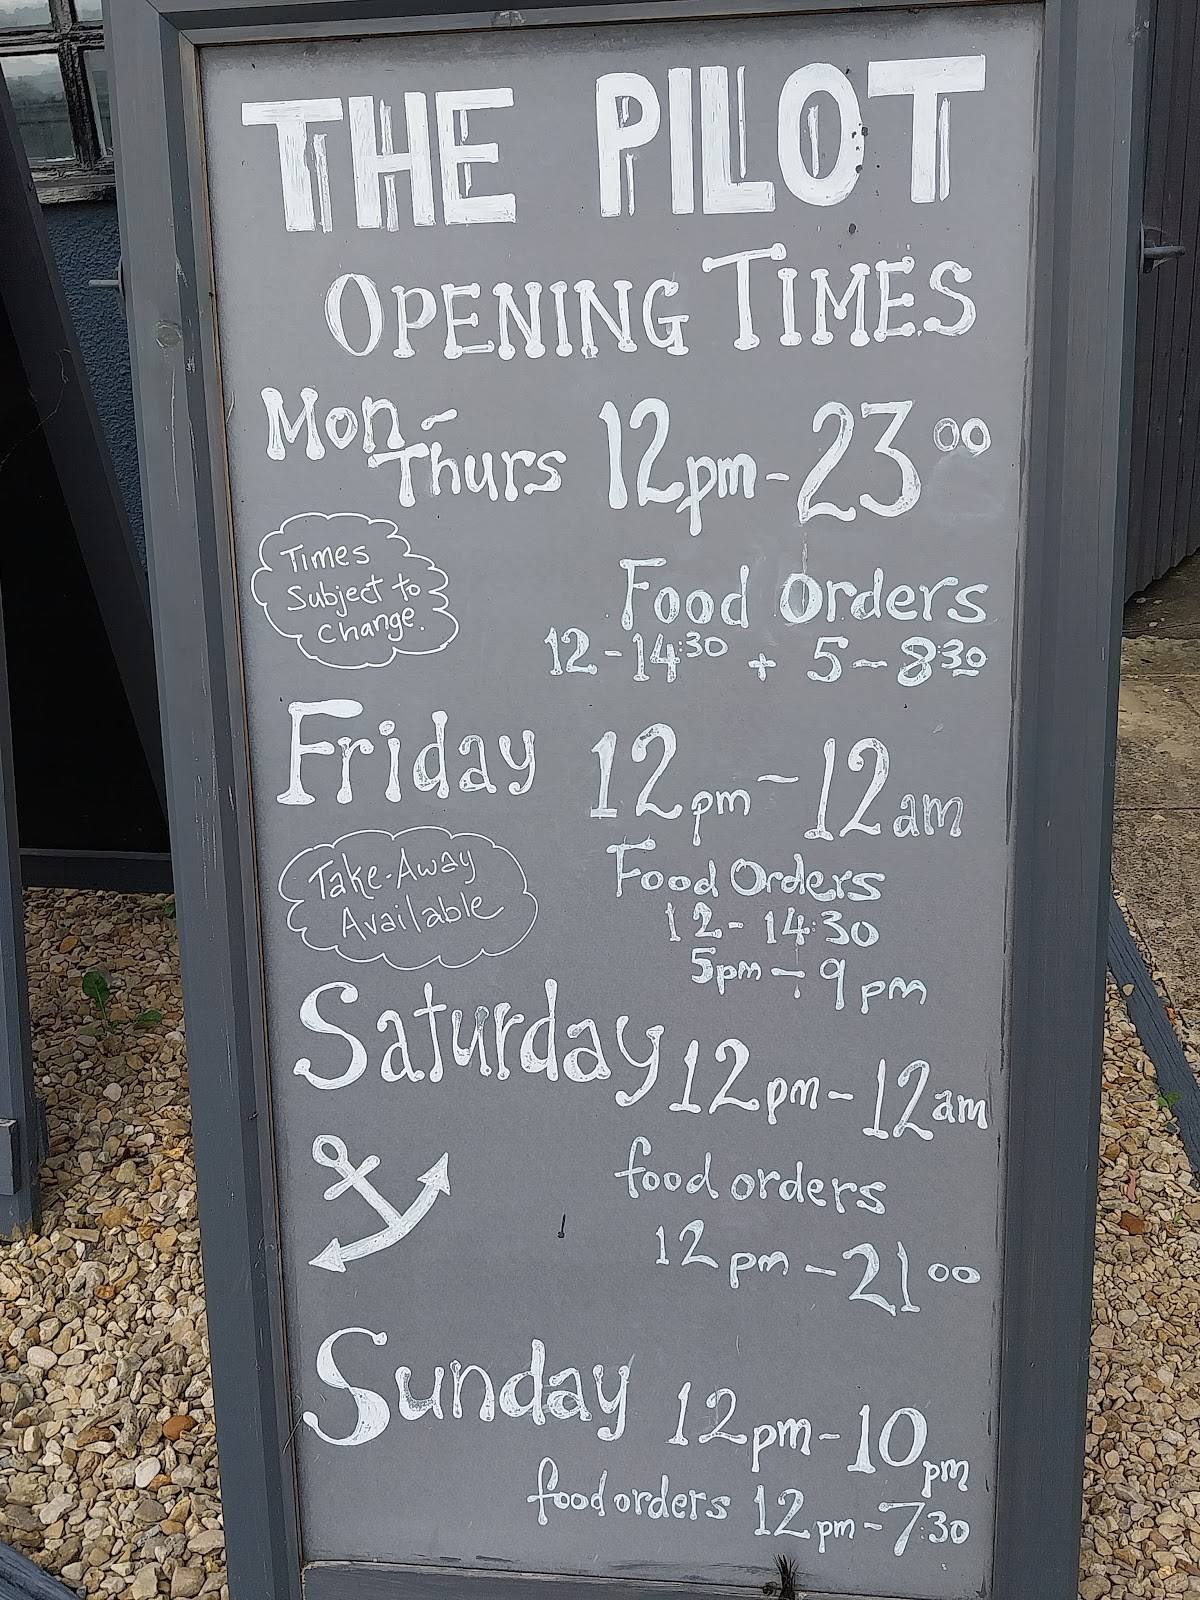 THE PILOT
OPENING TIMES
Mon -
Thurs 12pm - 23 00
Times
Subject to
Change.
Food Orders
12 - 14:30 + 5 - 8:30
Friday 12pm - 12am
Take-Away
Available
Food Orders
12 - 14:30
5pm - 9pm
Saturday 12pm - 12am
food orders
12pm - 21 00
Sunday 12pm - 10pm
food orders 12pm - 7:30